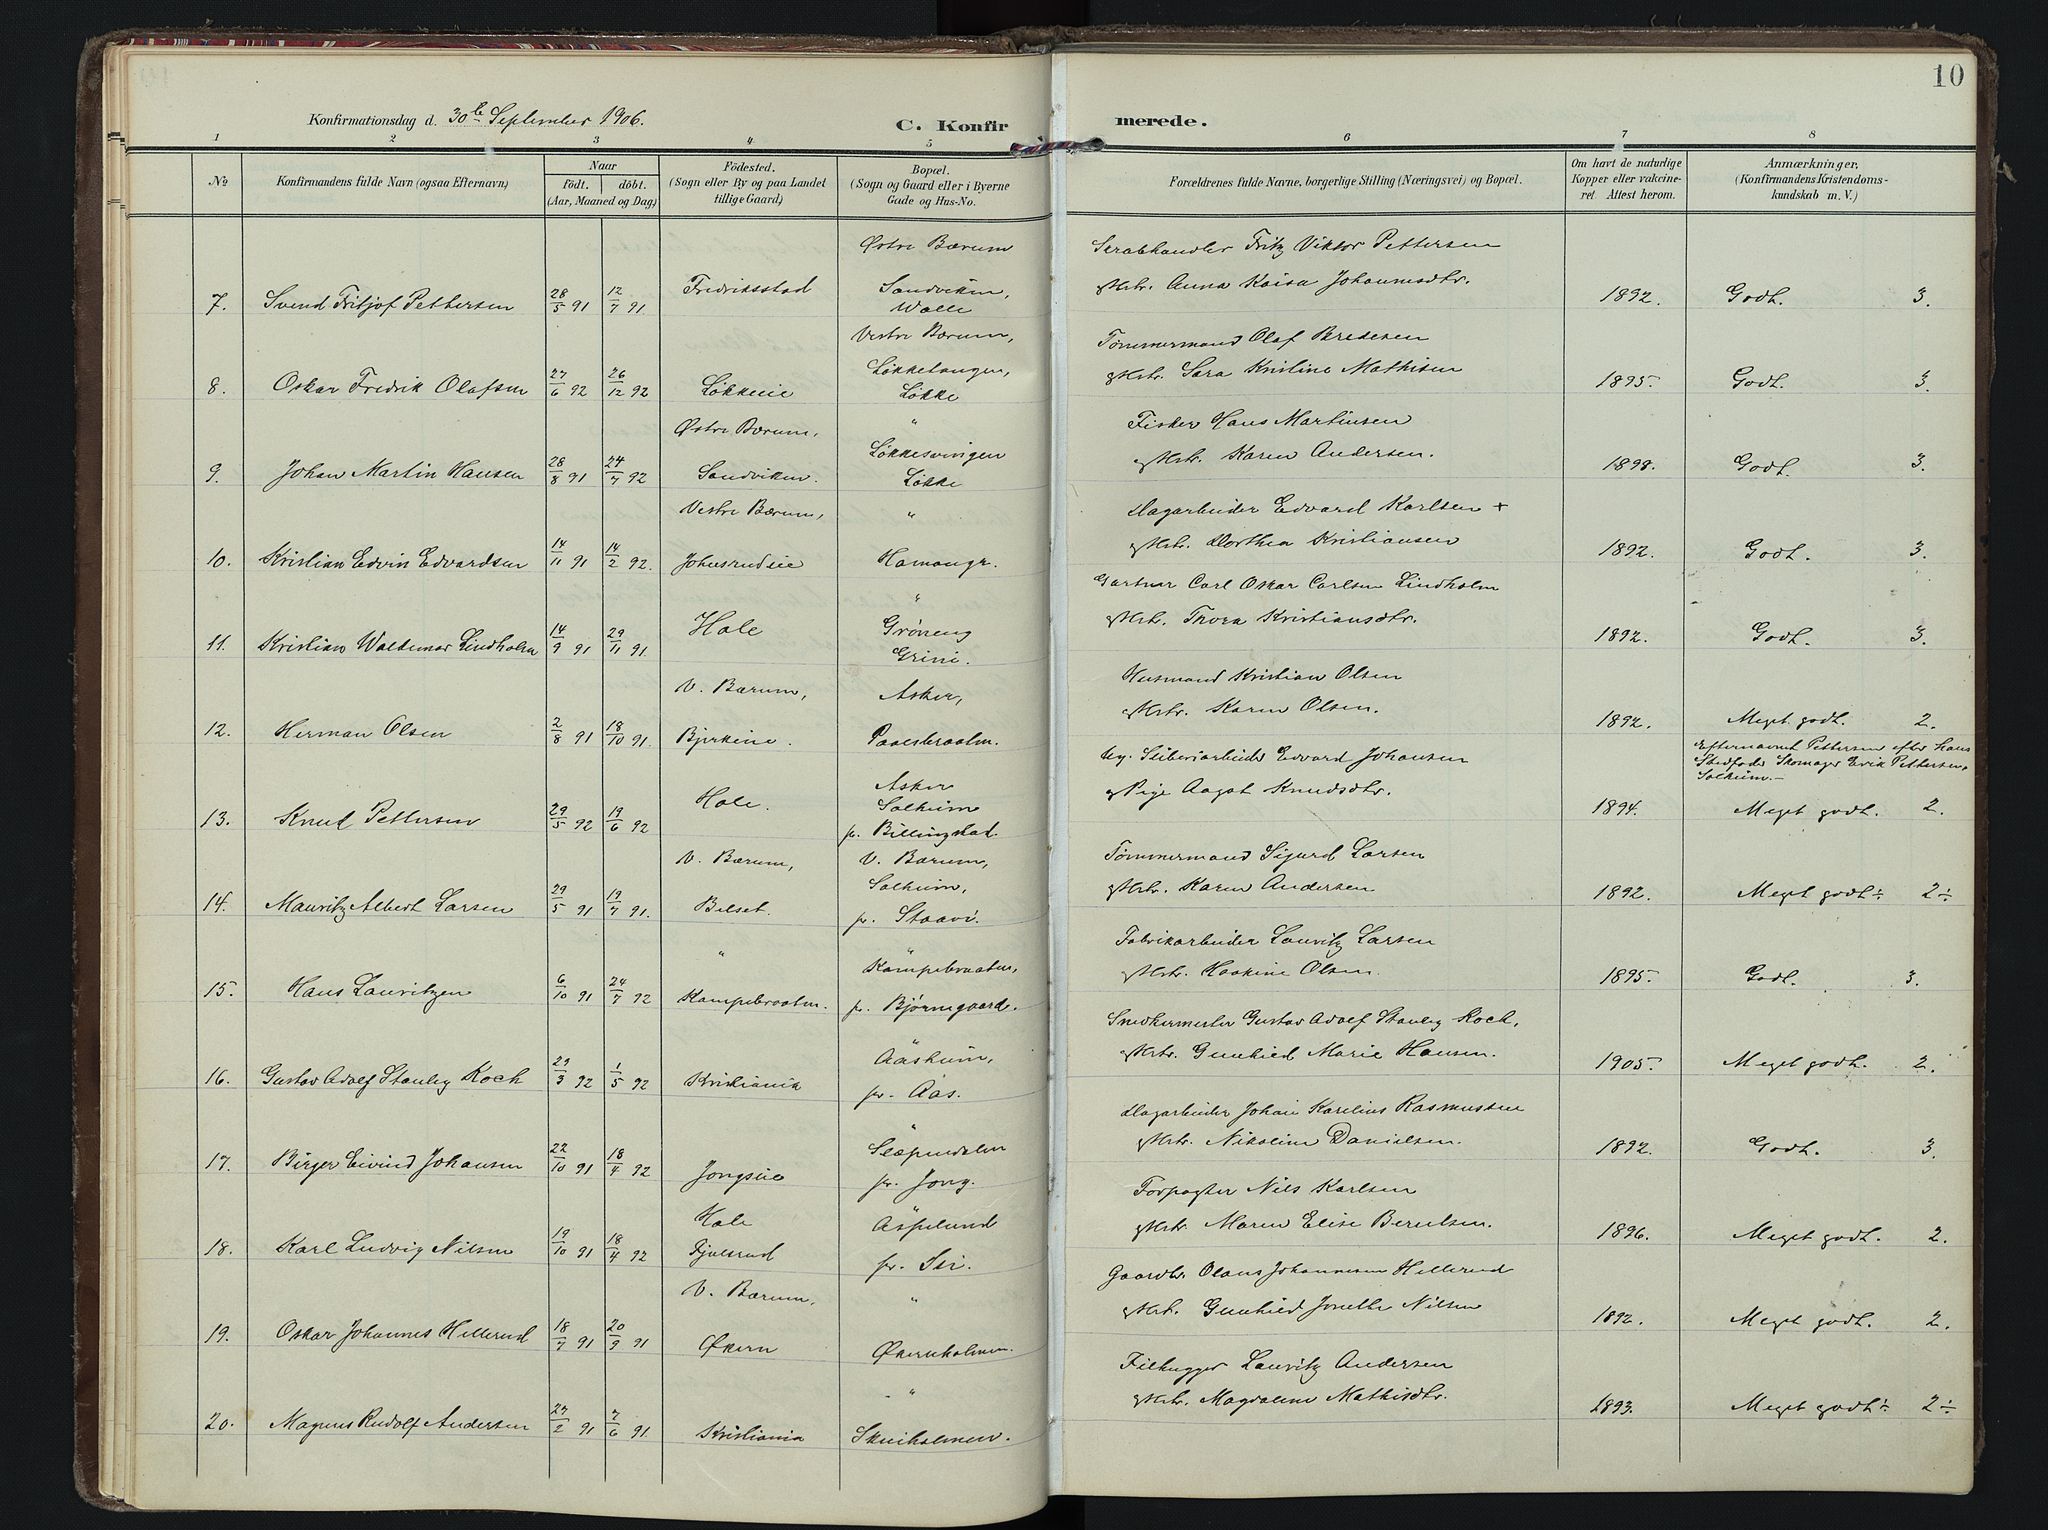 10
Konfirmationsdag d. 30te September 1906.
C. Konfirmerede.
1 2 3 4 5 6 7 8
No
Konfirmandens fulde Navn (ogsaa Efternavn)
Naar
födt. döbt.
(Aar, Maaned og Dag)
Födested.
(Sogn eller By og paa Landet
tillige Gaard)
Bopæl.
(Sogn og Gaard eller i Byerne
Gade og Hus-No.
Forældrenes fulde Navne, borgerlige Stilling (Næringsvei) og Bopæl.
Om havt de naturlige
Kopper eller vakcine-
ret. Attest herom.
Anmærkninger,
(Konfirmandens Kristendoms-
kundskab m. V.)
Østre Bærum Skrabhandler Fritz Viktor Pettersen
7. Svend Fritjof Pettersen 28/5 91 12/7 91. Fredriksstad Sandviken, Walle Hstr. Anna Kaisa Johannesdtr. 1892. Godt. 3.
Vestre Bærum, Tømmermand Olaf Bredesen
8. Oskar Fredrik Olafsen 27/6 92 26/12 92 Løkkeie Løkketangen, Løkke Hstr. Sara Kristine Mathisen 1895. Godt. 3.
Østre Bærum, " Fisker Hans Martinsen
9. Johan Martin Hansen 28/8 91 24/7 92 Sandviken. Løkkesvingen Løkke Hstr. Karen Andersen. 1898. Godt. 3.
Vestre Bærum, " Dagarbeider Edvard Karlsen +
10. Kristian Edvin Edvardsen 14/11 91 14/2 92. Johnsrudeie Hamangr. Hstr. Dorthea Kristiansen 1892. Godt. 3.
" Gartner Carl Oskar Carlsen Lindholm
11. Kristian Waldemar Lindholm 14/9 91 29/11 91. Hole Grøneng Grini. Hstr. Thora Kristiansdtr. 1892. Godt. 3.
V. Bærum, Asker, Husmand Kristian Olsen
12. Herman Olsen 2/8 91 18/10 91. Bjerkeie. Paalsbraatn. Hstr. Karen Olsen. 1892. Meget godt. 2.
Asker Ug. Sliberiarbeider Edvard Johansen Efternavnet Pettersen efter hans
Stedfader Skomager Erik Pettersen,
Solheim.-
13. Knud Pettersen 29/5 92 19/6 92 Hole. Solheim pr. Billingstad. Pige Aagot Knudsdtr. 1894. Meget godt. 2.
V. Bærum, V. Bærum, Tømmermand Sigurd Larsen
14. Mauritz Albert Larsen 29/5 91 19/7 91. Belset. Solheim, pr. Staavi. Hstr. Karen Andersen 1892. Meget godt ÷ 2÷
" " Fabrikarbeider Lauritz Larsen
15. Hans Lauritzen 6/10 91 24/7 92 Kampebraatn. Kampebraatn, pr. Bjørnegaard. Hstr. Haakine Olsen. 1895. Godt. 3.
Snedkermester Gustav Adolf Stanley Koch,
16. Gustav Adolf Stanley Koch 29/3 92 1/5 92 Kristiania Aasheim, pr. Aas. Hstr. Gunhild Marie Hansen. 1905. Meget godt. 2.
" Dagarbeider Johan Karelius Rasmussen
17. Birger Eivind Johansen 22/10 91 18/4 92 Jongseie Slæpendalen pr. Jong. Hstr. Nikoline Danielsen. 1892. Godt. 3.
Hole Forpagter Nils Karlsen
18. Karl Ludvig Nilsen 19/10 91 18/4 92 Fjelsrud Aspelund pr. Sei. Hstr. Maren Elise Berntsen. 1896. Meget godt. 2.
V. Bærum, " Gaardbr. Olaus Johannesen Hillerud
19. Oskar Johannes Hillerud 18/7 91 20/9 91 Økern Økernholmen. Hstr. Gunhild Jonette Nilsen 1892. Meget godt. 2.
" Filhugger Lauritz Andersen
20. Magnus Rudolf Andersen 27/2 91 7/6 91. Kristiania Skuiholmen. Hstr. Magdalene Mathisdtr. 1893. Meget godt ÷ 2÷